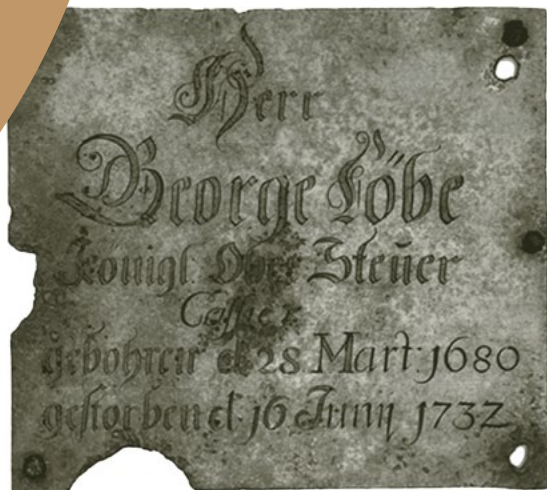 Herr
George Löbe
Königl. Ober Steüer
Cassier
gebohren d. 28 Mart: 1680
gestorben d. 16 Junÿ 1732